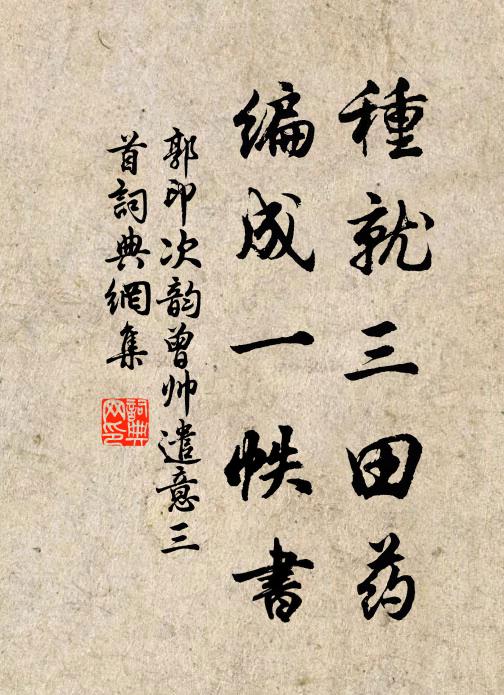 種就三田药
编成一帙書
郭印次韵曾帅遣意三
首詞典網集
詞典
网印